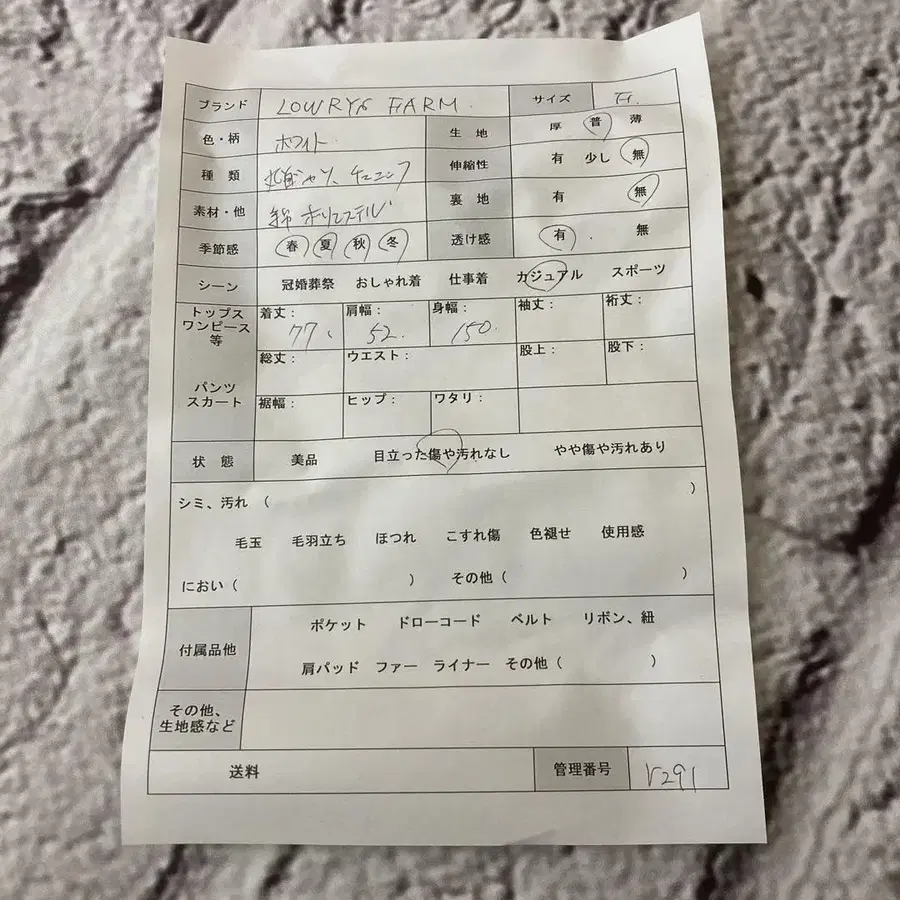 ブランド LOWRYS FARM サイズ F.
色・柄 ホワイト 生 地 厚 普 薄
種 類 シャツ、チュニック 伸縮性 有 少し 無
素材・他 綿 ポリエステル 裏 地 有 無
季節感 春 夏 秋 冬 透け感 有 . 無
シーン 冠婚葬祭 おしゃれ着 仕事着 カジュアル スポーツ
トップス 着丈: 肩幅: 身幅: 袖丈: 裄丈:
ワンピース 77 52. 150
等
総丈: ウエスト: 股上: 股下:
パンツ
スカート 裾幅: ヒップ: ワタリ:
状 態 美品 目立った傷や汚れなし やや傷や汚れあり
シミ、汚れ ( )
毛玉 毛羽立ち ほつれ こすれ傷 色褪せ 使用感
におい ( ) その他 ( )
ポケット ドローコード ベルト リボン、紐
付属品他
肩パッド ファー ライナー その他 ( )
その他、
生地感など
送料 管理番号 r291